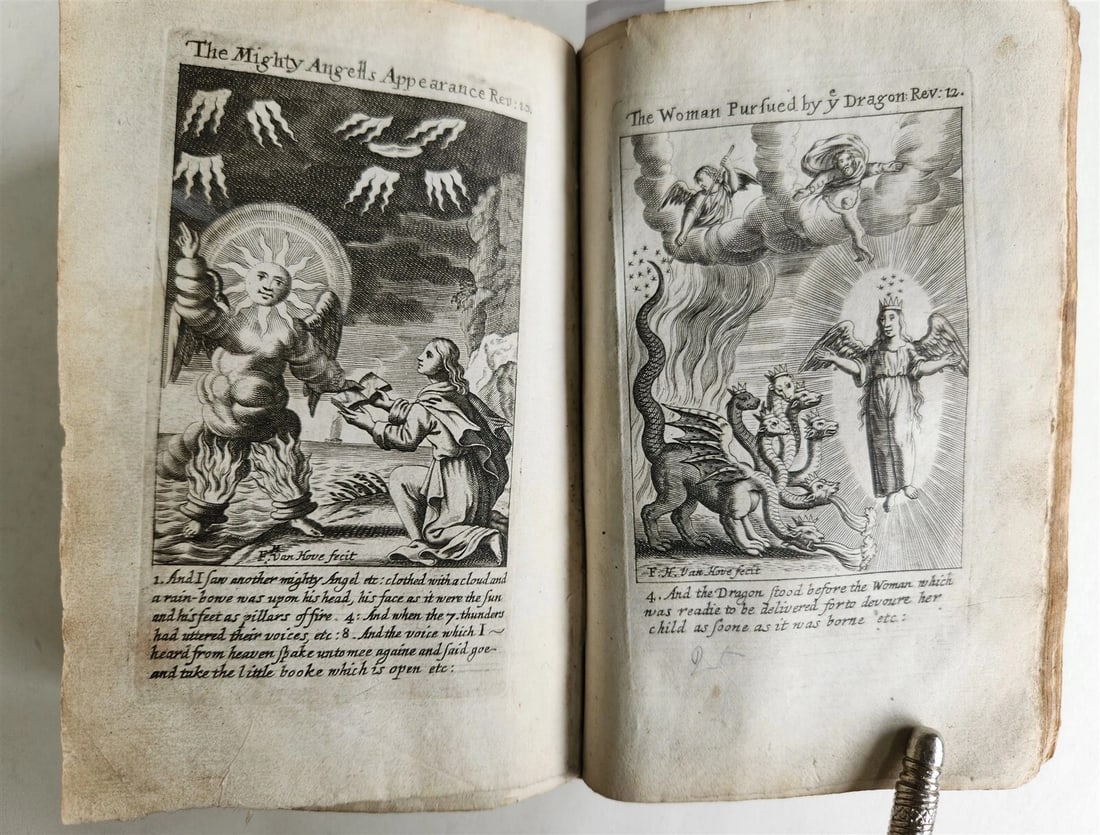 The Mighty Angells Appearance Rev: 10.
F H Van Hove fecit
1. And I saw another mighty Angel etc: clothed with a cloud and
a rain-bowe was upon his head, his face as it were the sun
and his feet as pillars of fire. 4: And when the 7. thunders
had uttered their voices, etc: 8. And the voice which I ~
heard from heaven spake unto mee againe and said goe-
and take the little booke which is open etc:
The Woman Pursued by yᵉ Dragon: Rev: 12.
F. H. Van Hove fecit
4. And the Dragon stood before the Woman which
was readie to be delivered for to devoure her
child as soone as it was borne etc: